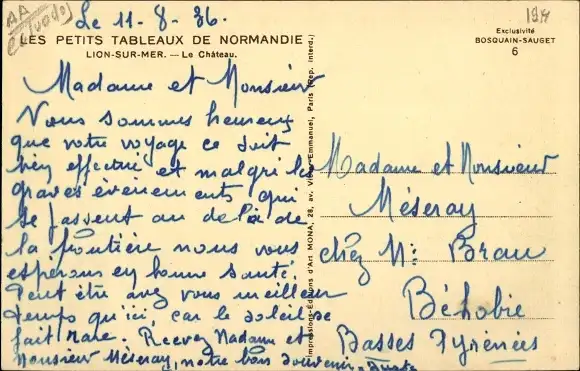 Le 11-8-36.
LES PETITS TABLEAUX DE NORMANDIE
LION-SUR-MER. — Le Château.
Madame et Monsieur
Nous sommes heureux
que votre voyage ce soit
bien effectué et malgré les
graves évènements qui
se passent au delà de
la frontière nous vous
espérons en bonne santé.
Peut être avez vous meilleur
temps qu'ici, car le soleil se
fait rare. Recevez Madame et
Monsieur Méseray, notre bon souvenir.
Impressions-Editions d'Art MONA, 28, av. Victor-Emmanuel, Paris (Rep. interd.)
Exclusivité
BOSQUAIN-SAUGET
6
Madame et Monsieur
Méseray
chez Mr Brau
Béhobie
Basses Pyrénées